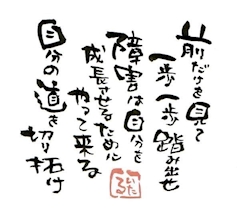 前だけを見て
一歩一歩踏み出せ
障害は自分を
成長させるために
やって来る
自分の道を
切り拓け